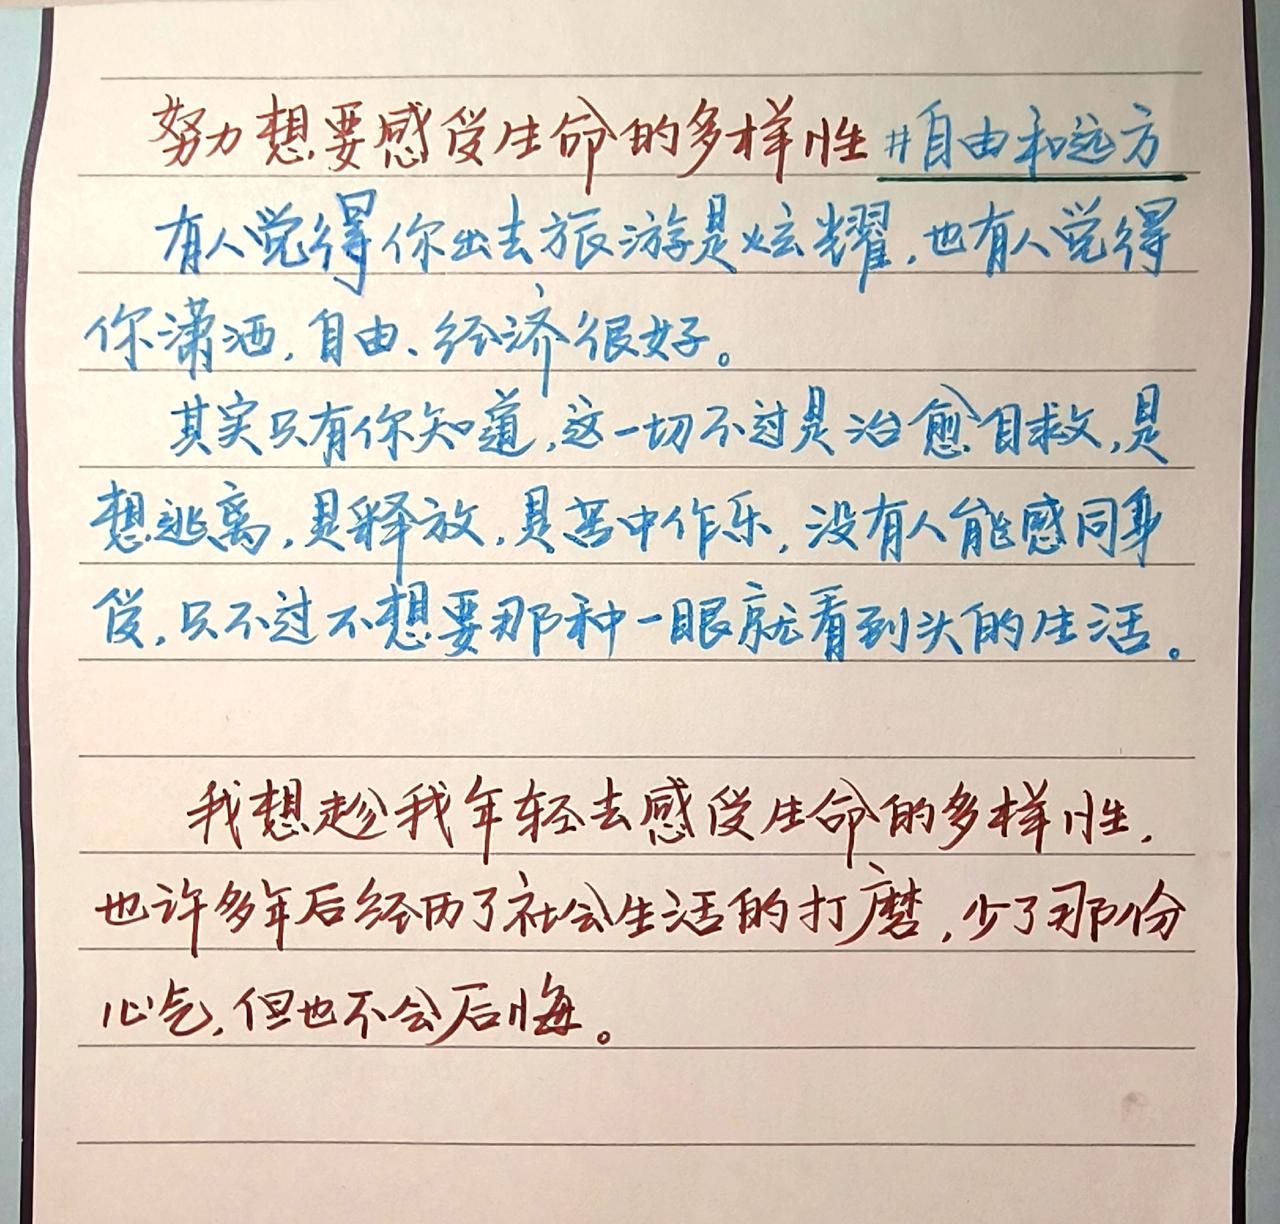 努力想要感受生命的多样性 #自由和远方
有人觉得你出去旅游是炫耀，也有人觉得
你潇洒，自由、经济很好。
其实只有你知道，这一切不过是治愈自救，是
想逃离，是释放，是苦中作乐，没有人能感同身
受，只不过不想要那种一眼就看到头的生活。
我想趁我年轻去感受生命的多样性，
也许多年后经历了社会生活的打磨，少了那份
心气，但也不会后悔。